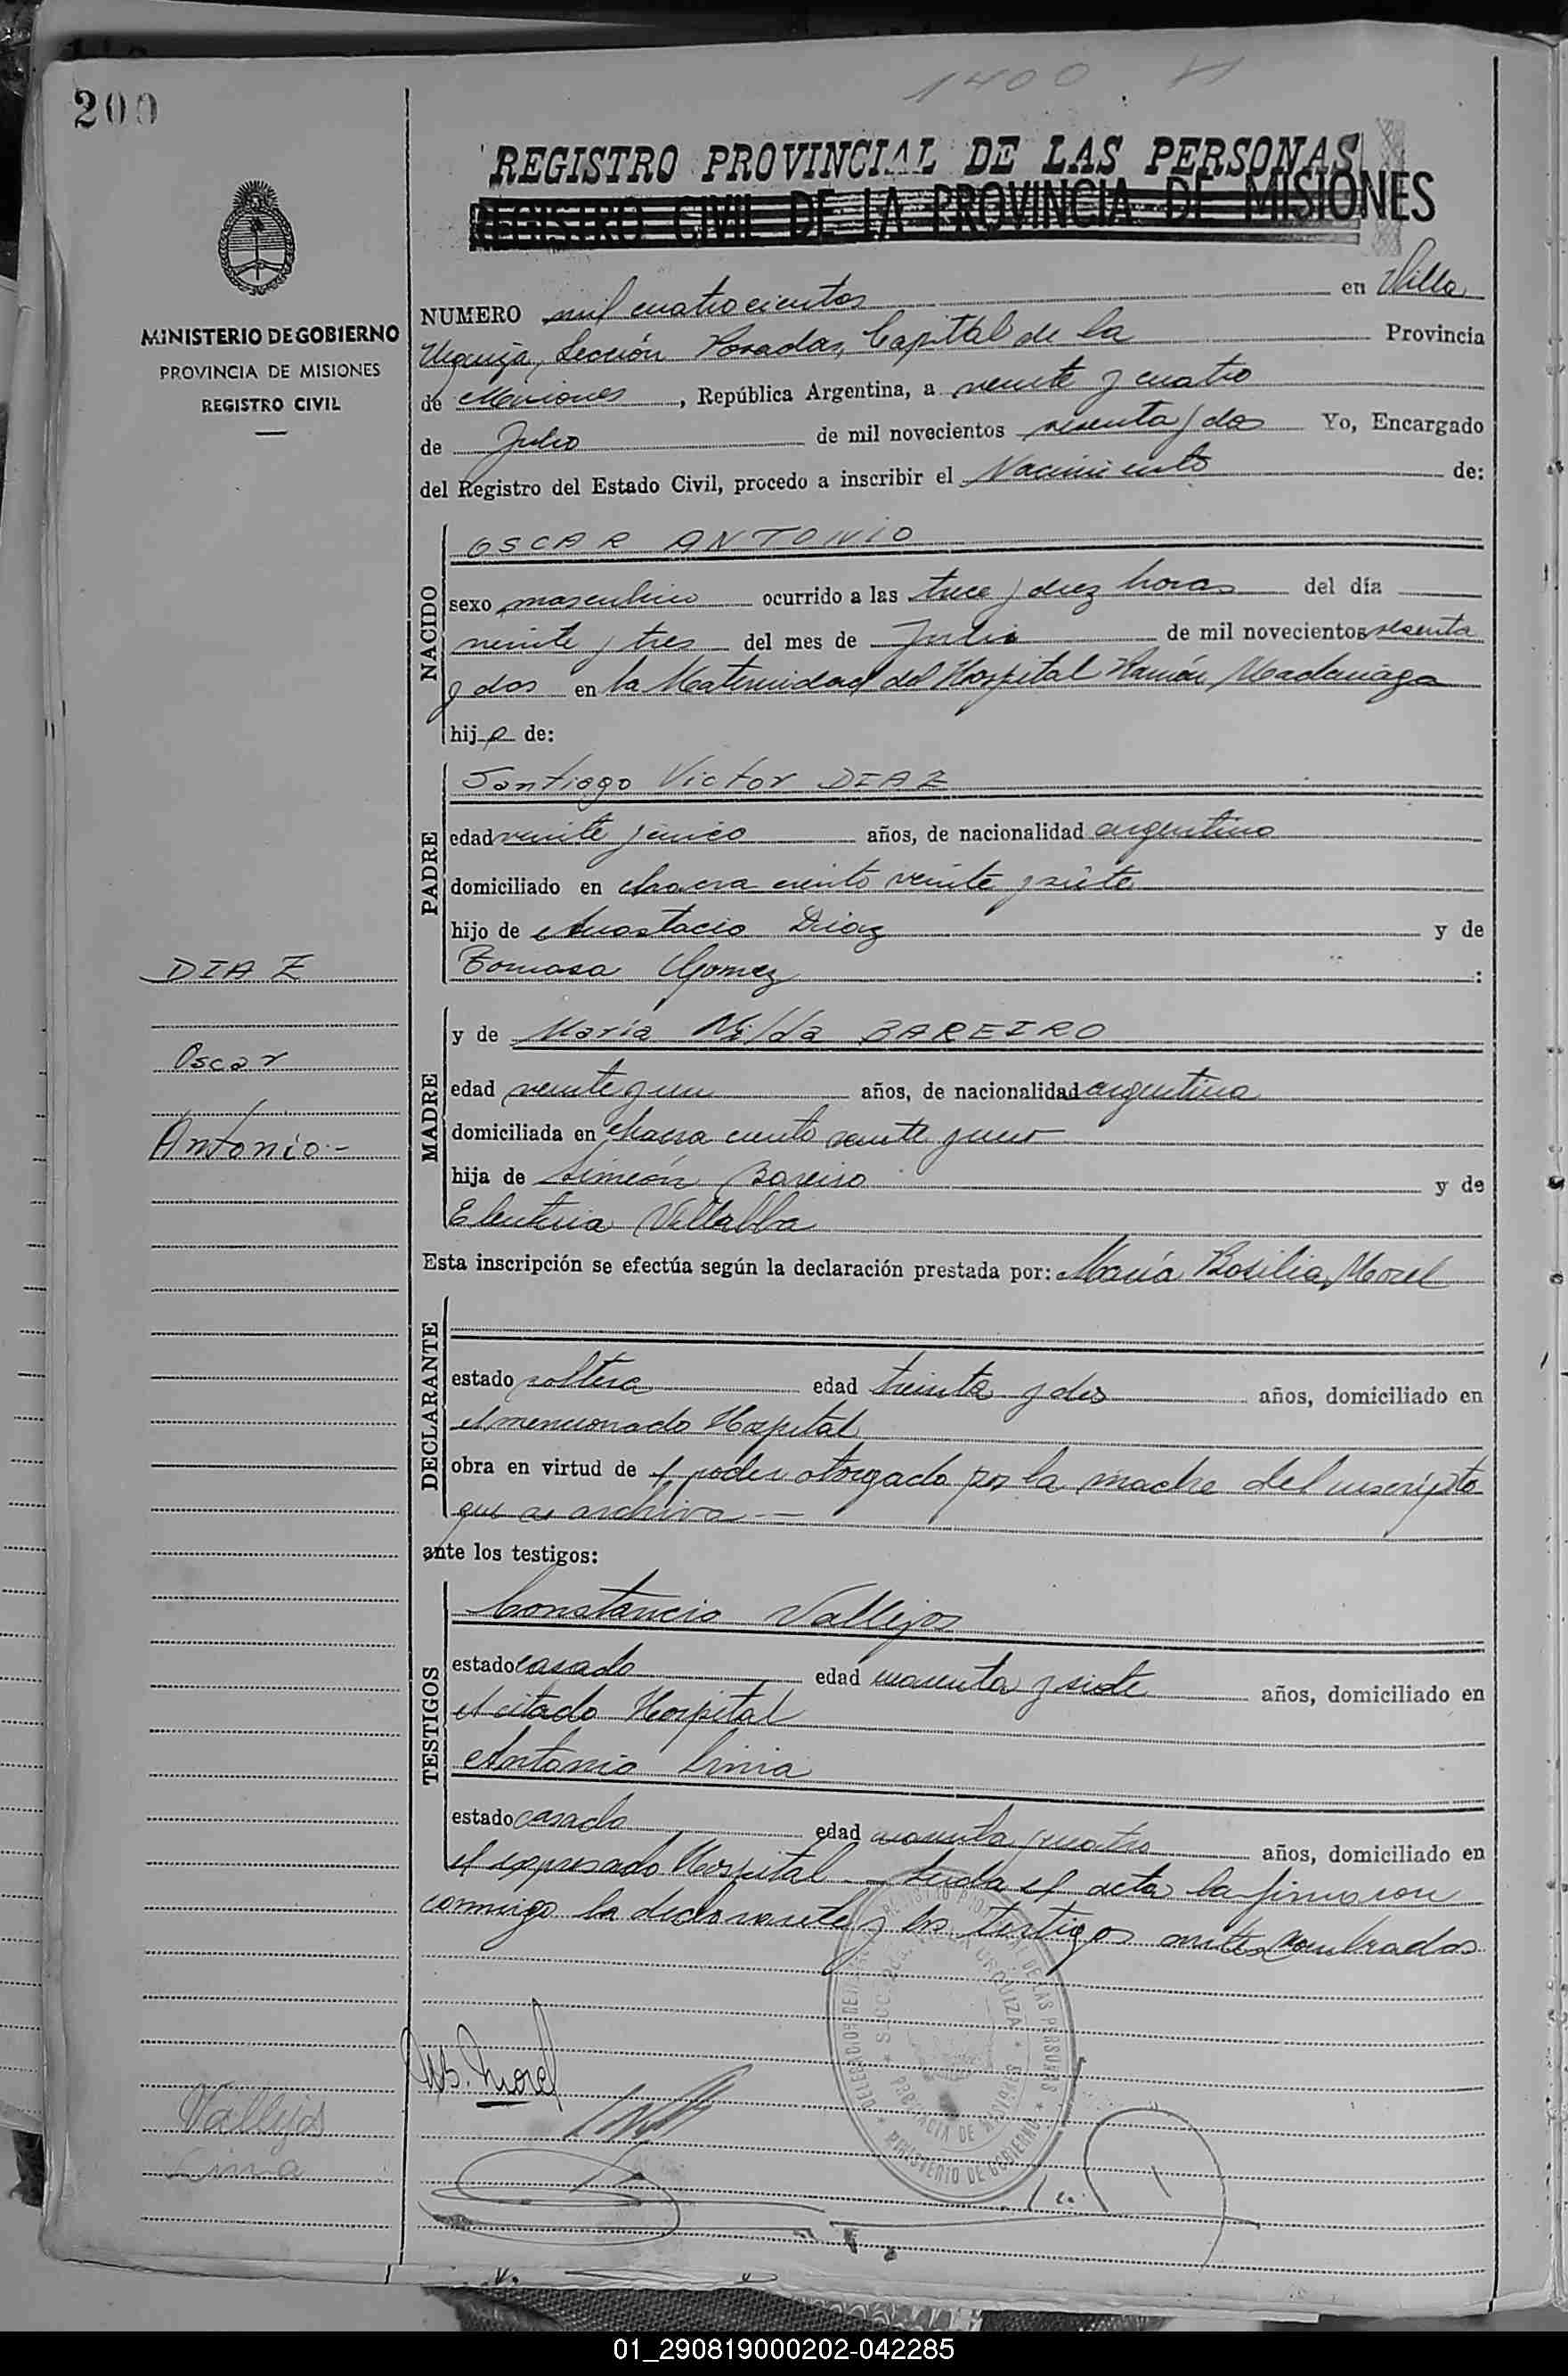 1400
200
REGISTRO PROVINCIAL DE LAS PERSONAS
REGISTRO CIVIL DE LA PROVINCIA DE MISIONES
MINISTERIO DE GOBIERNO
PROVINCIA DE MISIONES
REGISTRO CIVIL
NUMERO mil cuatrocientos en Villa
Urquiza, Sección Posadas, Capital de la Provincia
de Misiones, República Argentina, a veinte y cuatro
de Julio de mil novecientos sesenta y dos Yo, Encargado
del Registro del Estado Civil, procedo a inscribir el Nacimiento de:
NACIDO
OSCAR ANTONIO
sexo masculino ocurrido a las trece y diez horas del día
veinte y tres del mes de Julio de mil novecientos sesenta
y dos en la Maternidad del Hospital Ramón Madariaga
hijo de:
PADRE
Santiago Victor DIAZ
edad veinte y cinco años, de nacionalidad argentino
domiciliado en chacra ciento veinte y siete
hijo de Anastacio Diaz y de
Tomasa Gomez :
MADRE
y de María Nilda BAREIRO
edad veinte y un años, de nacionalidad argentina
domiciliada en chacra ciento veinte y
hija de Simeón Bareiro y de
Eleuteria Villalba
DIAZ
Oscar
Antonio.-
Esta inscripción se efectúa según la declaración prestada por: María Basilia Morel
DECLARANTE
estado soltera edad treinta y dos años, domiciliado en
el mencionado Hospital
obra en virtud de el poder otorgado por la madre del inscripto
que se archiva.—
ante los testigos:
TESTIGOS
Constancio Vallejos
estado casado edad cuarenta y siete años, domiciliado en
el citado Hospital
Antonio Cinia
estado casado edad cuarenta y cuatro años, domiciliado en
el expresado Hospital.- Leída el acta la firmaron
conmigo la declarante y los testigos antes nombrados
M.B. Morel
Vallejos
DE LAS PERSONAS
URQUIZA
PROVINCIA DE MISIONES
MINISTERIO DE GOBIERNO
01_290819000202-042285